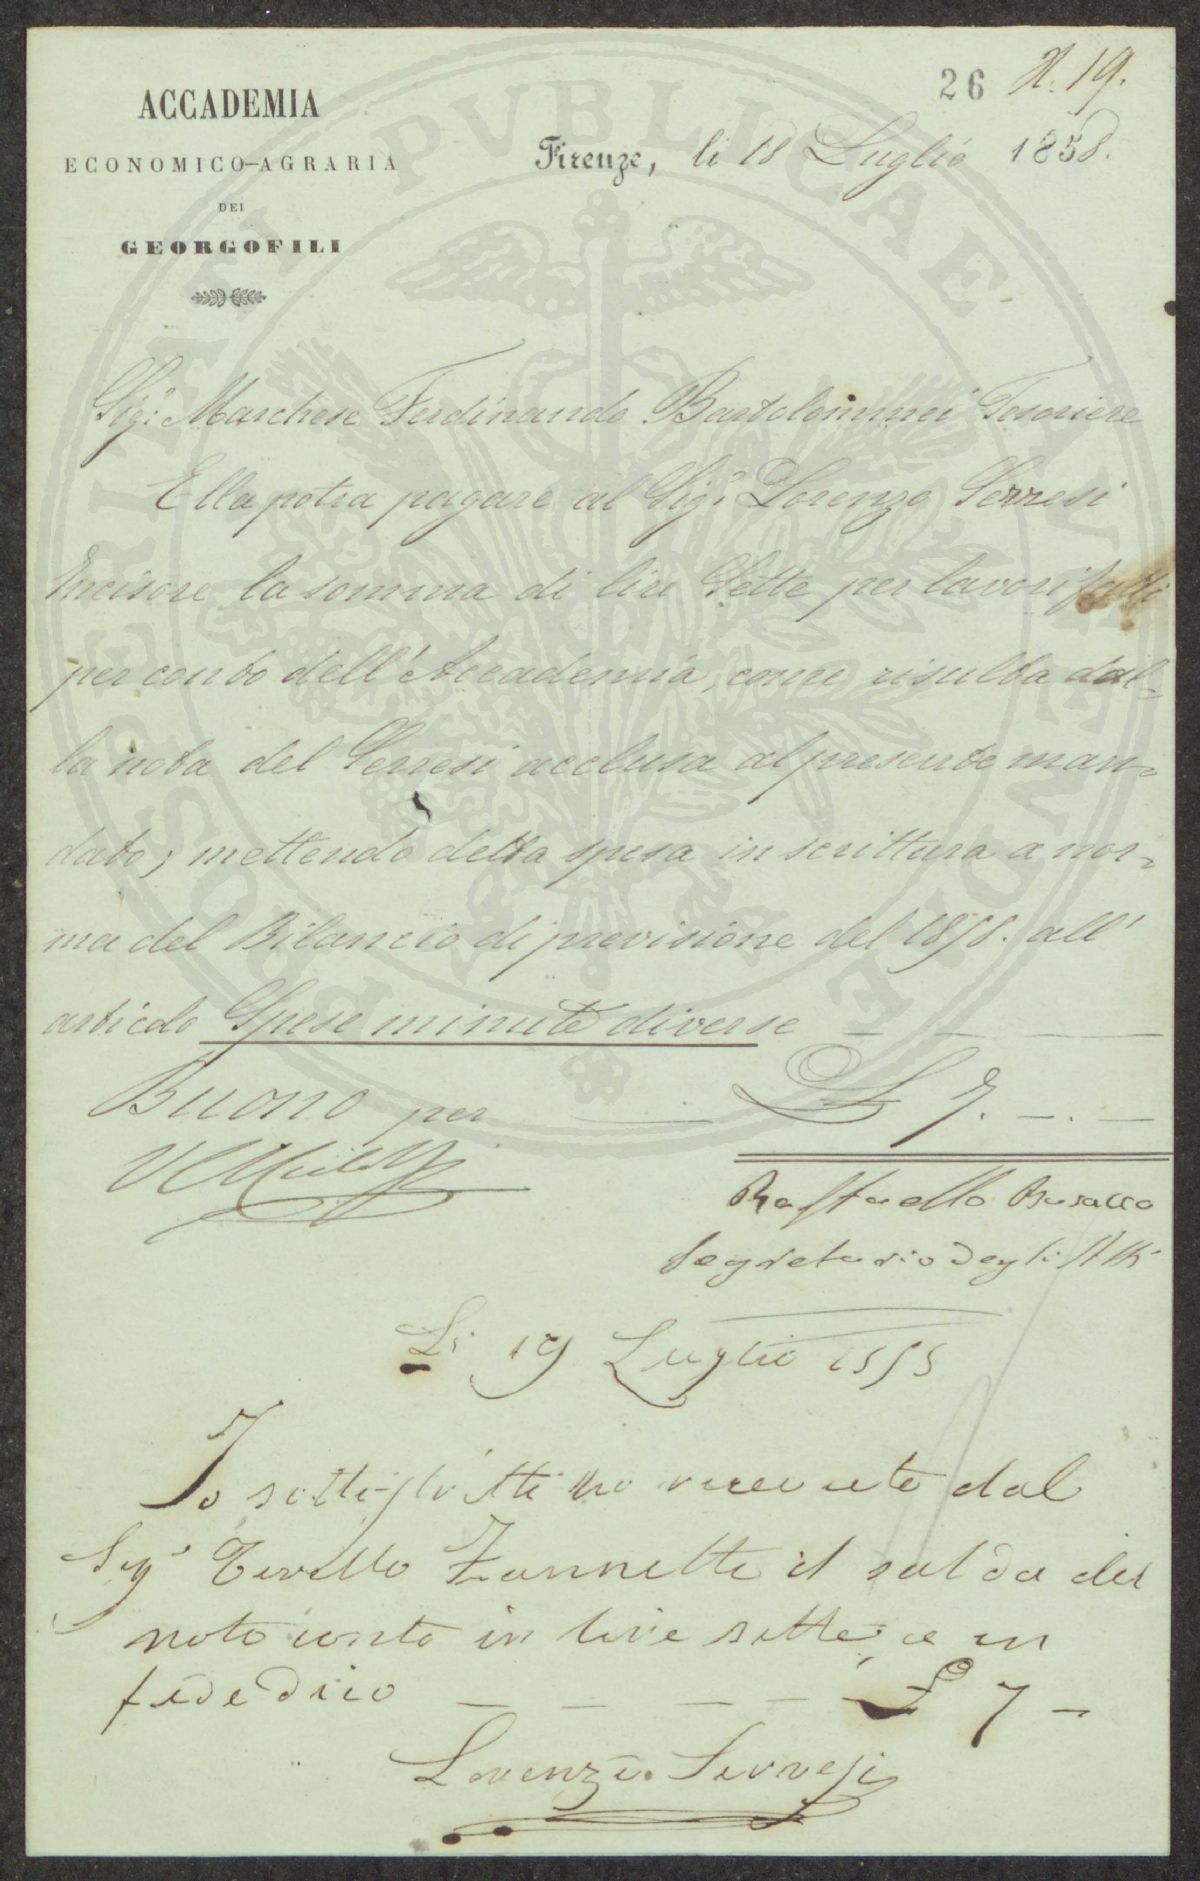 26 N. 19.
ACCADEMIA
ECONOMICO-AGRARIA
DEI
GEORGOFILI
Firenze, li 18 Luglio 1858.
Sigr. Marchese Ferdinando Bartolommei Tesoriere
Ella potra pagare al Sigr. Lorenzo Serresi
Incisore la somma di lire Sette per lavori fatti
per conto dell'Accademia, come risulta dal=
la nota del Serresi acclusa al presente man=
dato; mettendo detta spesa in scrittura a nor=
ma del Bilancio di previsione del 1858. all'
articolo Spese minute diverse
Buono per £ 7. — . —
Raffaello Busacca
Segretario degli Atti
Li 19 Luglio 1858
Io sottoscritto ho ricevuto dal
Sigr Zannetti il saldo del
noto conto in lire sette e in
fede dico £ 7 —
Lorenzo Serresi
PROSPERITATI PVBLICAE AVGENDAE